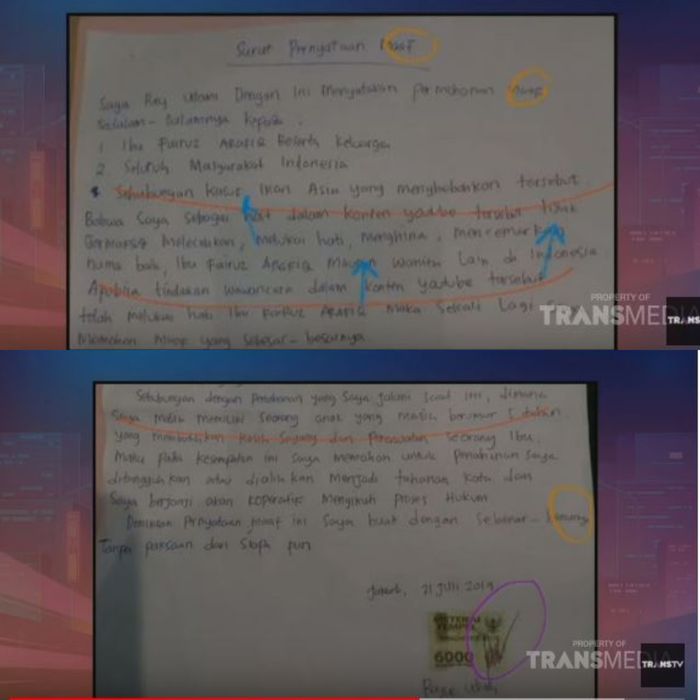 Surat Pernyataan Maaf
Saya Rey Utami Dengan Ini Menyatakan permohonan Maaf
Sedalam-dalamnya kepada.
1. Ibu Fairuz ARAFIQ Beserta Keluarga
2. Seluruh Masyarakat Indonesia
Sehubungan kasus Ikan Asin yang menghebohkan tersebut.
Bahwa Saya sebagai host dalam konten youtube tersebut tidak
bermaksud melecehkan, melukai hati, menghina, mencemarkan
nama baik, Ibu Fairuz ARAFIQ Maupun wanita Lain di Indonesia.
Apabila tindakan wawancara dalam konten youtube tersebut
telah melukai hati Ibu Fairuz ARAFIQ Maka Sekali Lagi Saya
Memohon Maaf yang sebesar-besarnya
PROPERTY OF
TRANSMEDIA
TRANS
Sehubungan dengan Penahanan yang Saya Jalani Saat ini, dimana
Saya masih memiliki seorang anak yang masih berumur 5 tahun
yang membutuhkan Kasih Sayang dan Perawatan Seorang Ibu.
Maka pada kesempatan ini saya memohon untuk penahanan saya
ditangguhkan atau dialihkan Menjadi tahanan kota dan
Saya berjanji akan koperatif Mengikuti Proses Hukum
Demikian Pernyataan maaf ini Saya buat dengan Sebenar-benarnya
Tanpa paksaan dari Siapa pun
21 Juli 2019
METERAI
TEMPEL
6000
PROPERTY OF
TRANSMEDIA
TRANSTV